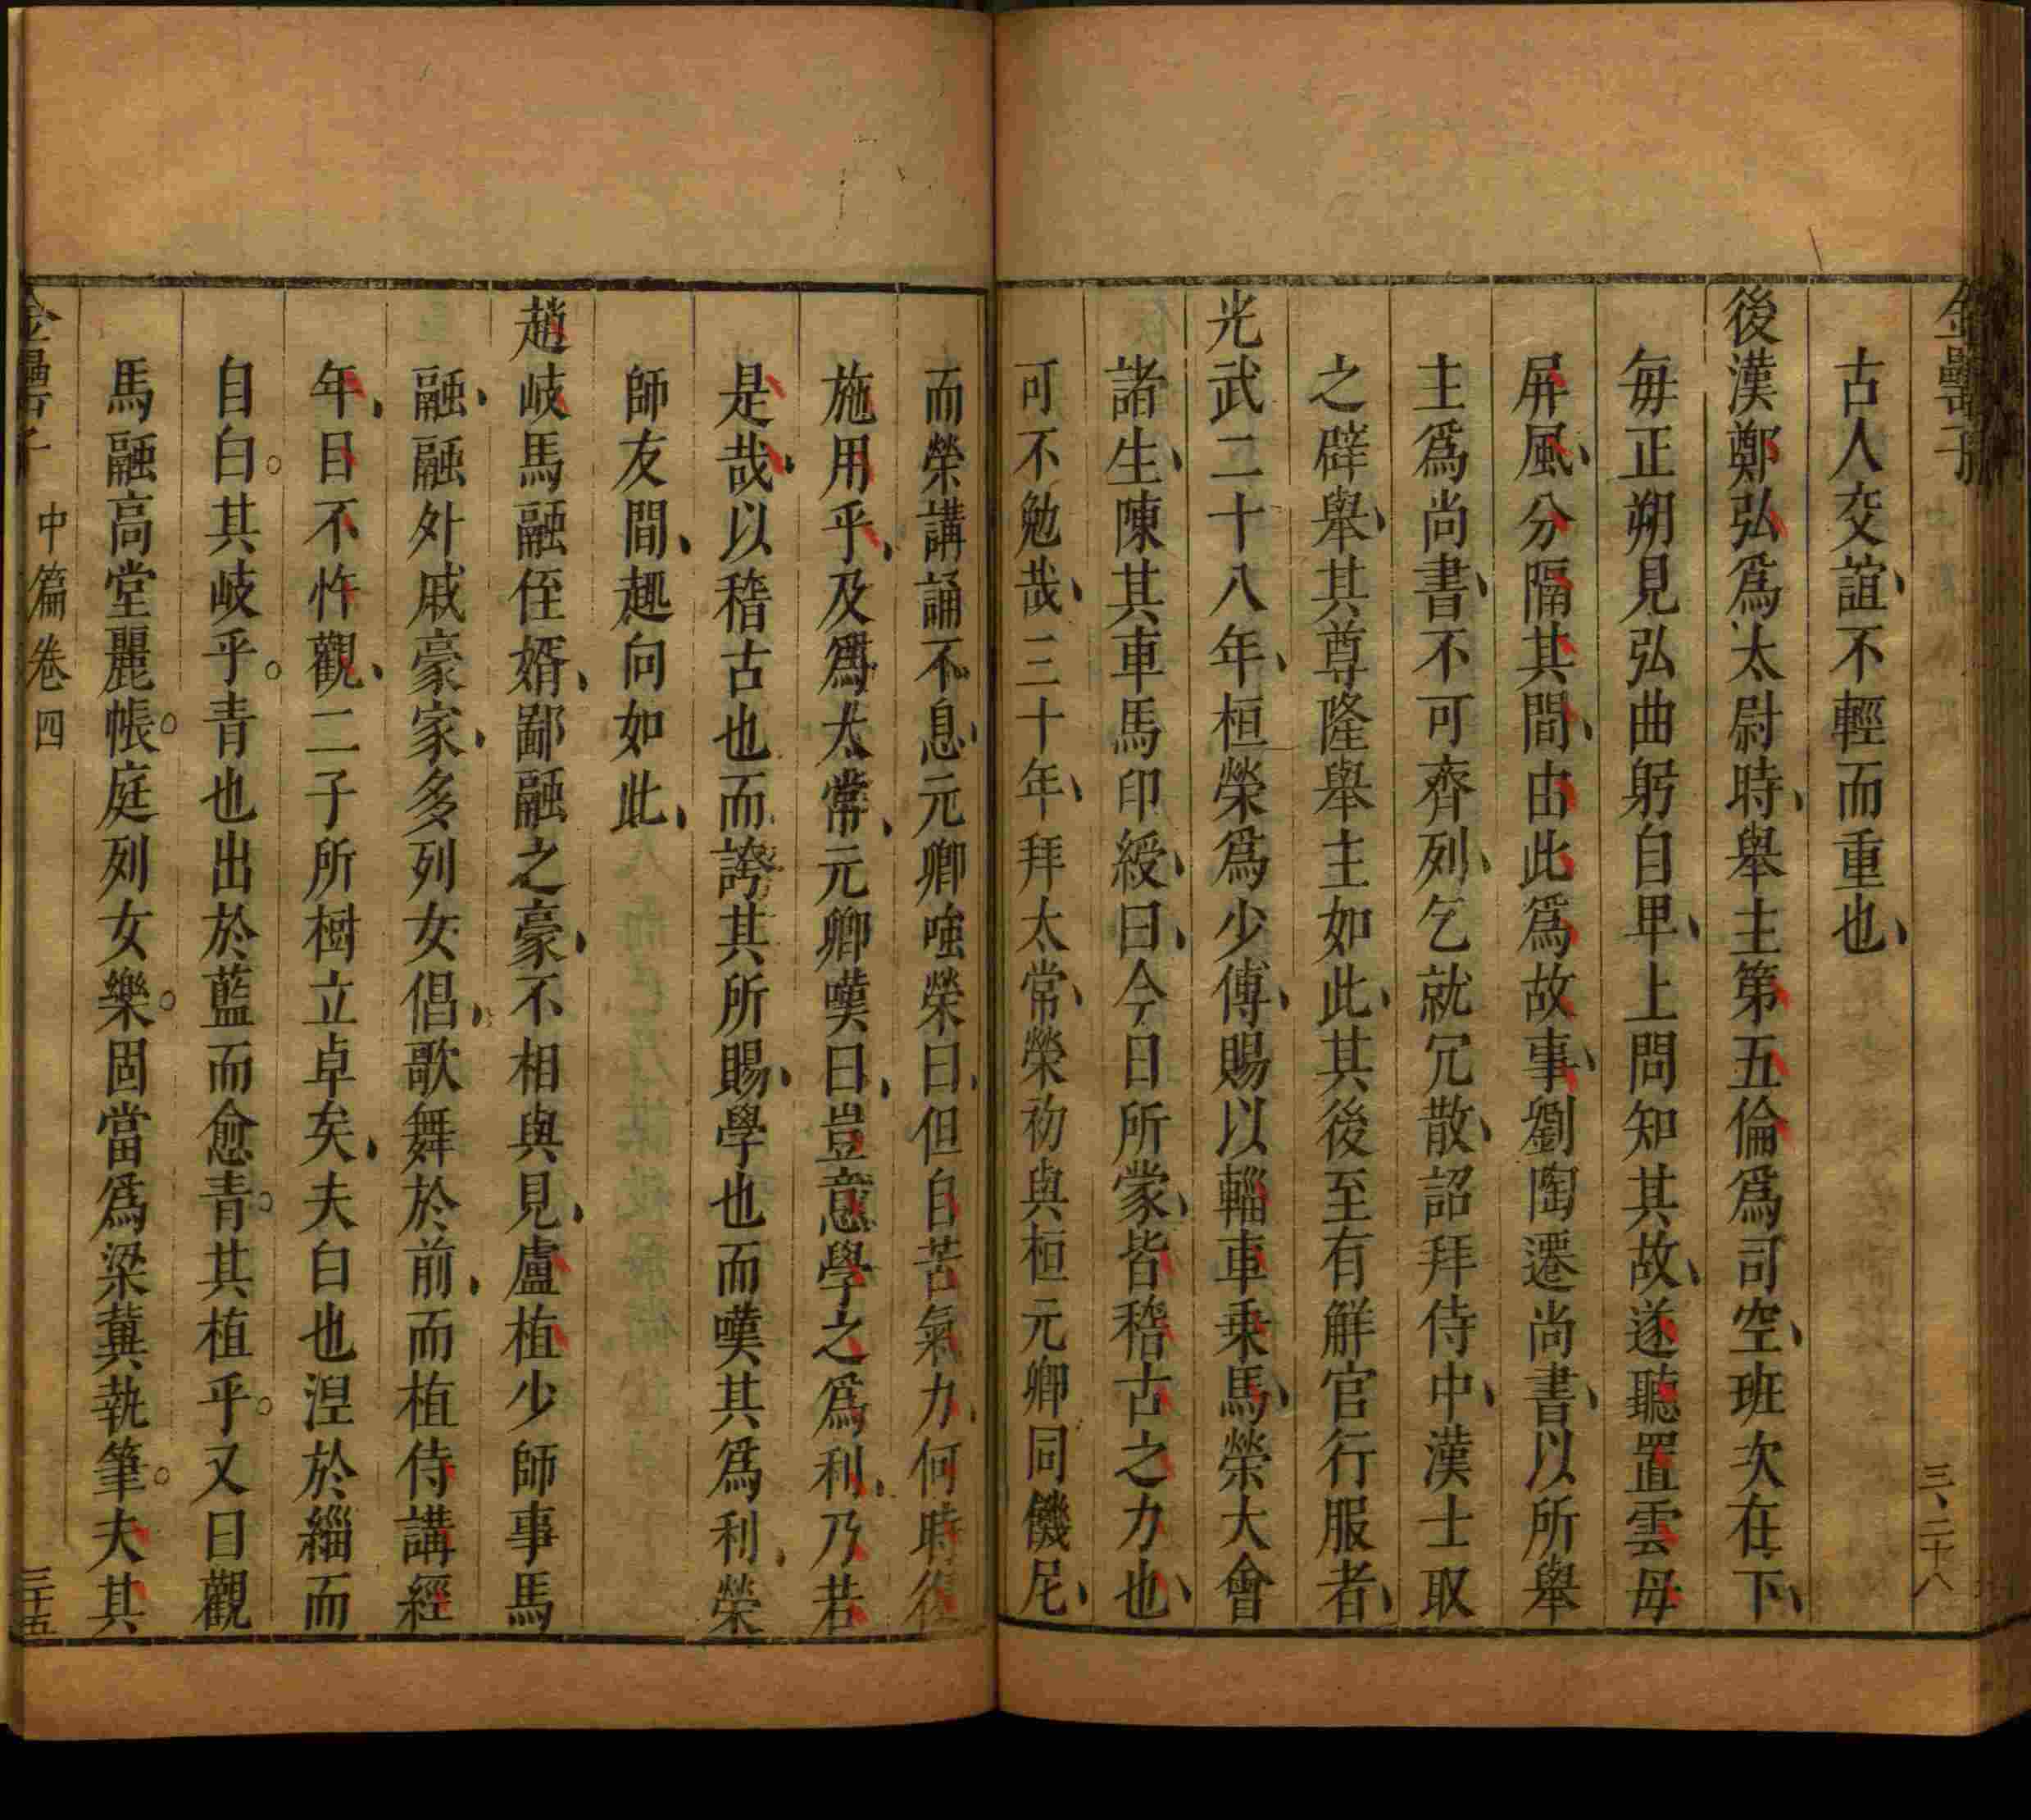 金罍子
三、二十八
古人交誼、不輕而重也、
後漢鄭弘爲太尉時、舉主第五倫爲司空、班次在下、
每正朔見弘曲躬自𤰞、上問知其故、遂聽置雲母
屏風、分隔其間、由此爲故事、劉陶遷尚書、以所舉
主爲尚書、不可齊列、乞就冗散、詔拜侍中、漢士取
之辟舉、其尊隆舉主如此、其後至有解官行服者、
光武二十八年、桓榮爲少傅、賜以輜車乗馬、榮大會
諸生、陳其車馬印綬、曰、今日所蒙、皆稽古之力也、
可不勉哉、三十年、拜太常、榮初與桓元卿同饑厄、
而榮講誦不息、元卿嗤榮曰、但自苦氣力、何時復
施用乎、及爲太常、元卿嘆曰、豈意學之爲利、乃若
是哉、以稽古也而誇其所賜、學也而嘆其爲利、榮
師友間、趣向如此、
趙岐馬融侄婿、鄙融之豪、不相與見、盧植少師事馬
融、融外戚豪家、多列女倡、歌舞於前、而植侍講經
年、目不忤觀、二子所樹立卓矣、夫白也涅於緇而
自白。其岐乎。青也出於藍而愈青。其植乎。又曰觀
馬融高堂麗帳。庭列女樂。固當爲梁冀執筆。夫其
金罍子 中篇卷四 三十五